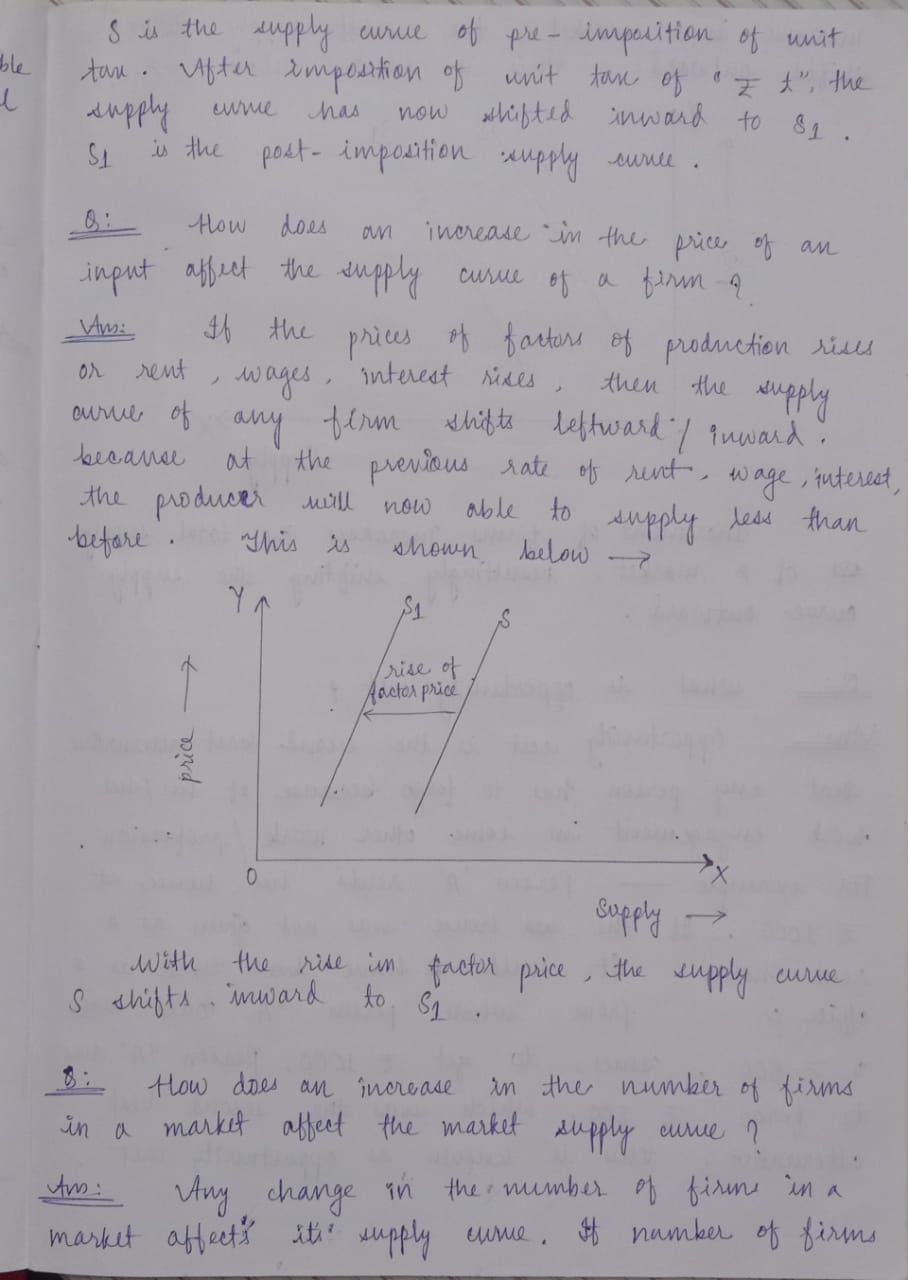 S is the supply curve of pre-imposition of unit
ble tax. After imposition of unit tax of "₹ t", the
supply curve has now shifted inward to S1.
S1 is the post-imposition supply curve.
Q: How does an increase in the price of an
input affect the supply curve of a firm?
Ans: If the prices of factors of production rises
or rent, wages, interest rises, then the supply
curve of any firm shifts leftward/inward.
because at the previous rate of rent, wage, interest,
the producer will now able to supply less than
before. This is shown below →
Y
S1
S
rise of
factor price
price →
O
X
Supply →
With the rise in factor price, the supply curve
S shifts inward to S1.
Q: How does an increase in the number of firms
in a market affect the market supply curve?
Ans: Any change in the number of firms in a
market affects its supply curve. If number of firms